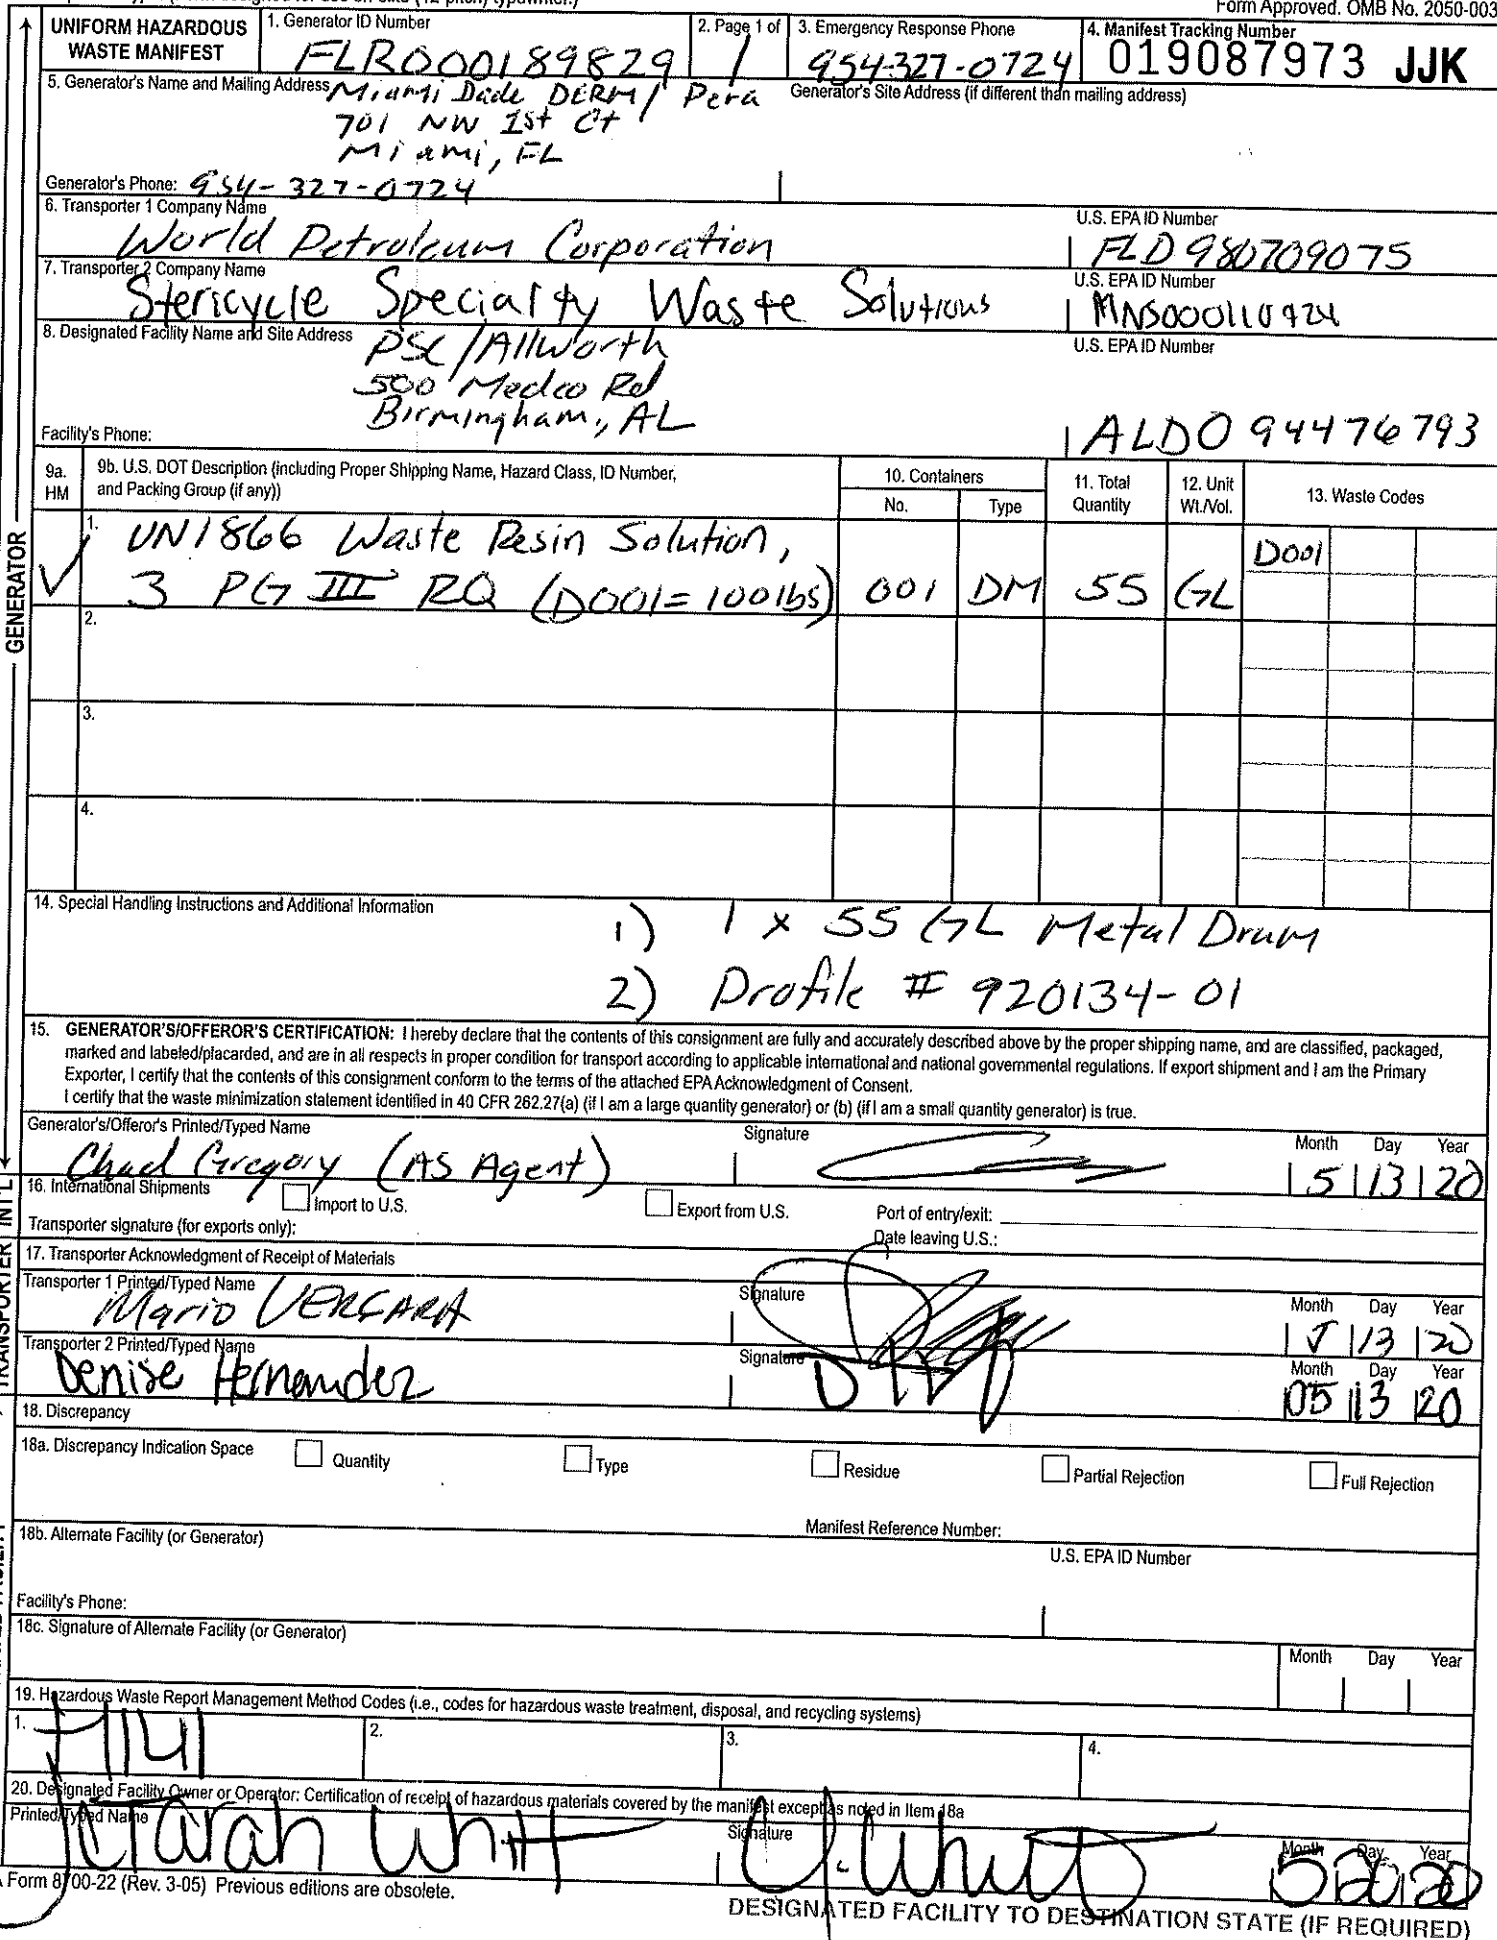 Form Approved. OMB No. 2050-003
UNIFORM HAZARDOUS WASTE MANIFEST
1. Generator ID Number
FLR000189829
2. Page 1 of
1
3. Emergency Response Phone
954-327-0724
4. Manifest Tracking Number
019087973 JJK
5. Generator's Name and Mailing Address
Miami Dade DERM / Pera
701 NW 1st Ct
Miami, FL
Generator's Site Address (if different than mailing address)
Generator's Phone: 954-327-0724
6. Transporter 1 Company Name
World Petroleum Corporation
U.S. EPA ID Number
FLD980709075
7. Transporter 2 Company Name
Stericycle Specialty Waste Solutions
U.S. EPA ID Number
MNS000110924
8. Designated Facility Name and Site Address
PSC/Allworth
500 Medco Rd
Birmingham, AL
U.S. EPA ID Number
Facility's Phone:
ALD094476793
GENERATOR
9a. HM
9b. U.S. DOT Description (including Proper Shipping Name, Hazard Class, ID Number, and Packing Group (if any))
10. Containers
No.
Type
11. Total Quantity
12. Unit Wt./Vol.
13. Waste Codes
1.
UN1866 Waste Resin Solution,
3 PG III RQ (D001=100lbs)
001
DM
55
GL
D001
2.
3.
4.
14. Special Handling Instructions and Additional Information
1) 1 x 55 GL Metal Drum
2) Profile # 920134-01
15. GENERATOR'S/OFFEROR'S CERTIFICATION: I hereby declare that the contents of this consignment are fully and accurately described above by the proper shipping name, and are classified, packaged,
marked and labeled/placarded, and are in all respects in proper condition for transport according to applicable international and national governmental regulations. If export shipment and I am the Primary
Exporter, I certify that the contents of this consignment conform to the terms of the attached EPA Acknowledgment of Consent.
I certify that the waste minimization statement identified in 40 CFR 262.27(a) (if I am a large quantity generator) or (b) (if I am a small quantity generator) is true.
Generator's/Offeror's Printed/Typed Name
Signature
Month Day Year
Chad Gregory (AS Agent)
5 13 20
16. International Shipments
Import to U.S.
Export from U.S.
Port of entry/exit:
Transporter signature (for exports only):
Date leaving U.S.:
TRANSPORTER INT'L
17. Transporter Acknowledgment of Receipt of Materials
Transporter 1 Printed/Typed Name
Signature
Month Day Year
Mario VERGARA
5 13 20
Transporter 2 Printed/Typed Name
Signature
Month Day Year
Denise Hernandez
05 13 20
18. Discrepancy
18a. Discrepancy Indication Space
Quantity
Type
Residue
Partial Rejection
Full Rejection
Manifest Reference Number:
18b. Alternate Facility (or Generator)
U.S. EPA ID Number
Facility's Phone:
18c. Signature of Alternate Facility (or Generator)
Month Day Year
19. Hazardous Waste Report Management Method Codes (i.e., codes for hazardous waste treatment, disposal, and recycling systems)
1.
H141
2.
3.
4.
20. Designated Facility Owner or Operator: Certification of receipt of hazardous materials covered by the manifest except as noted in Item 18a
Printed/Typed Name
Signature
Month Day Year
Whitt
5 20 20
Form 8700-22 (Rev. 3-05) Previous editions are obsolete.
DESIGNATED FACILITY TO DESTINATION STATE (IF REQUIRED)